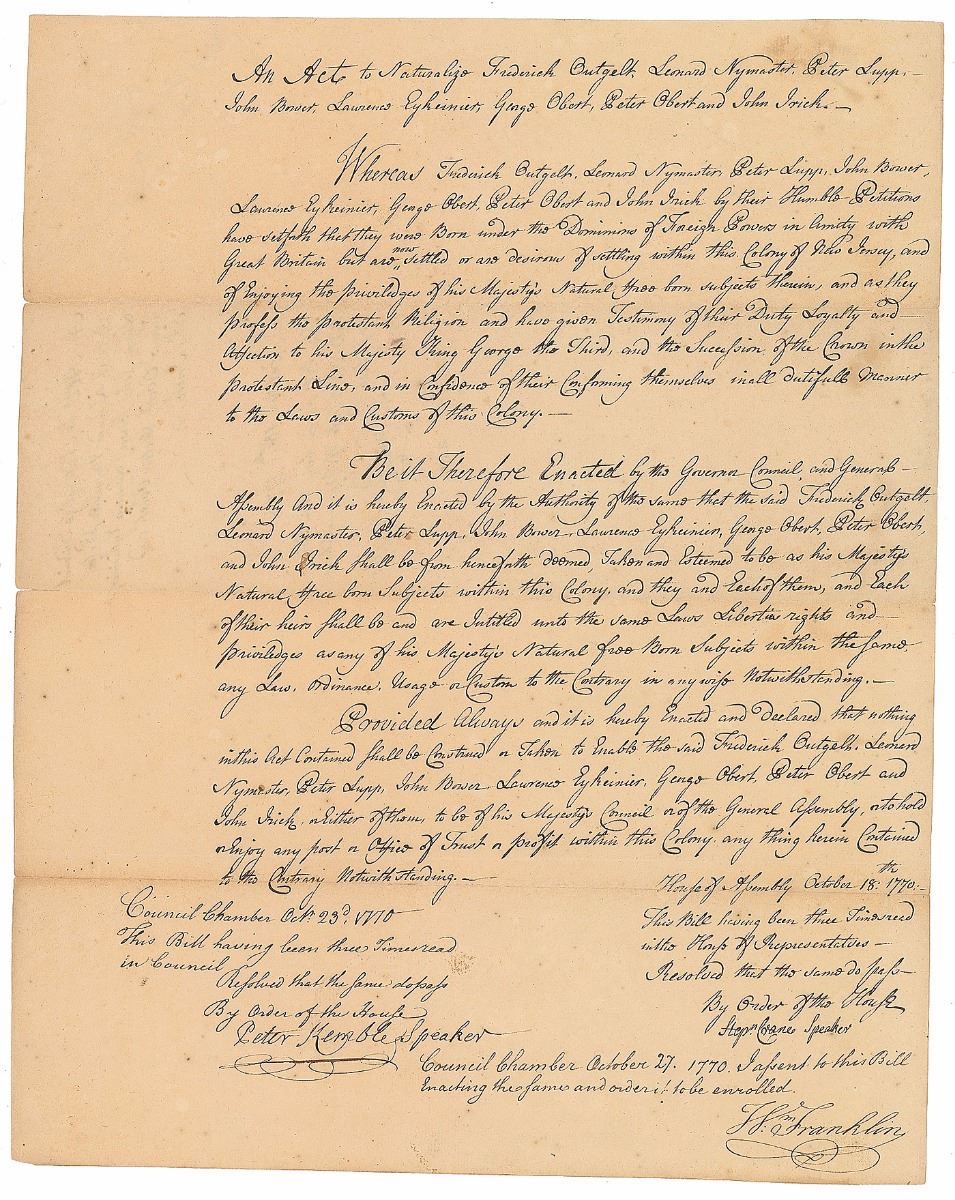 An Act to Naturalize Frederick Outgelt, Leonard Nymaster, Peter Lupp,
John Bower, Lawrence Eykeinier, George Obert, Peter Obert and John Irick.—
Whereas Frederick Outgelt, Leonard Nymaster, Peter Lupp, John Bower,
Lawrence Eykeinier, George Obert, Peter Obert and John Irick by their Humble Petitions
have setforth that they were Born under the Dominions of Foreign Powers in Amity with
Great Britain but are now settled or are desirous of settling within this Colony of New Jersey, and
of Enjoying the priviledges of his Majesty's Natural free born Subjects therein, and as they
profess the protestant Religion and have given Testimony of their Duty Loyalty and
Affection to his Majesty King George the Third, and the Succession of the Crown in the
protestant Line, and in Confidence of their Conforming themselves in all dutifull manner
to the Laws and Customs of this Colony.—
Be it Therefore Enacted by the Governor Council, and General
Assembly And it is hereby Enacted by the Authority of the same that the said Frederick Outgelt,
Leonard Nymaster, Peter Lupp, John Bower, Lawrence Eykeinier, George Obert, Peter Obert,
and John Irick shall be from henceforth deemed, Taken and Esteemed to be as his Majesty's
Natural free born Subjects within this Colony, and they and Each of them, and Each
of their heirs shall be and are Intitled unto the same Laws Liberties rights and
priviledges as any of his Majesty's Natural free Born Subjects within the same
any Law, Ordinance, Usage or Custom to the Contrary in any wise Notwithstanding.—
Provided Always and it is hereby Enacted and Declared that nothing
in this Act Contained shall be Construed or Taken to Enable the said Frederick Outgelt, Leonard
Nymaster, Peter Lupp, John Bower, Lawrence Eykeinier, George Obert, Peter Obert and
John Irick, or Either of them, to be of his Majesty's Council or of the General Assembly, or to hold
or Enjoy any post or Office of Trust or profit within this Colony, any thing herein Contained
to the Contrary Notwithstanding.—
House of Assembly October 18th 1770.—
This Bill having been three Times read
in the House of Representatives—
Resolved that the same do pass—
By Order of the House
Stepn Crane Speaker
Council Chamber Octr 23d 1770
This Bill having been three Times read
in Council
Resolved that the same do pass
By Order of the House
Peter Kemble Speaker
Council Chamber October 27. 1770. I assent to this Bill
Enacting the same and order it to be enrolled.
Wm Franklin